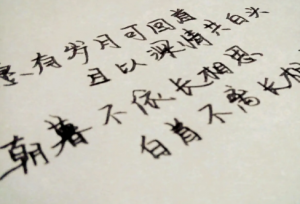 愿有岁月可回首
且以深情共白头
朝暮不依长相思
白首不离长相